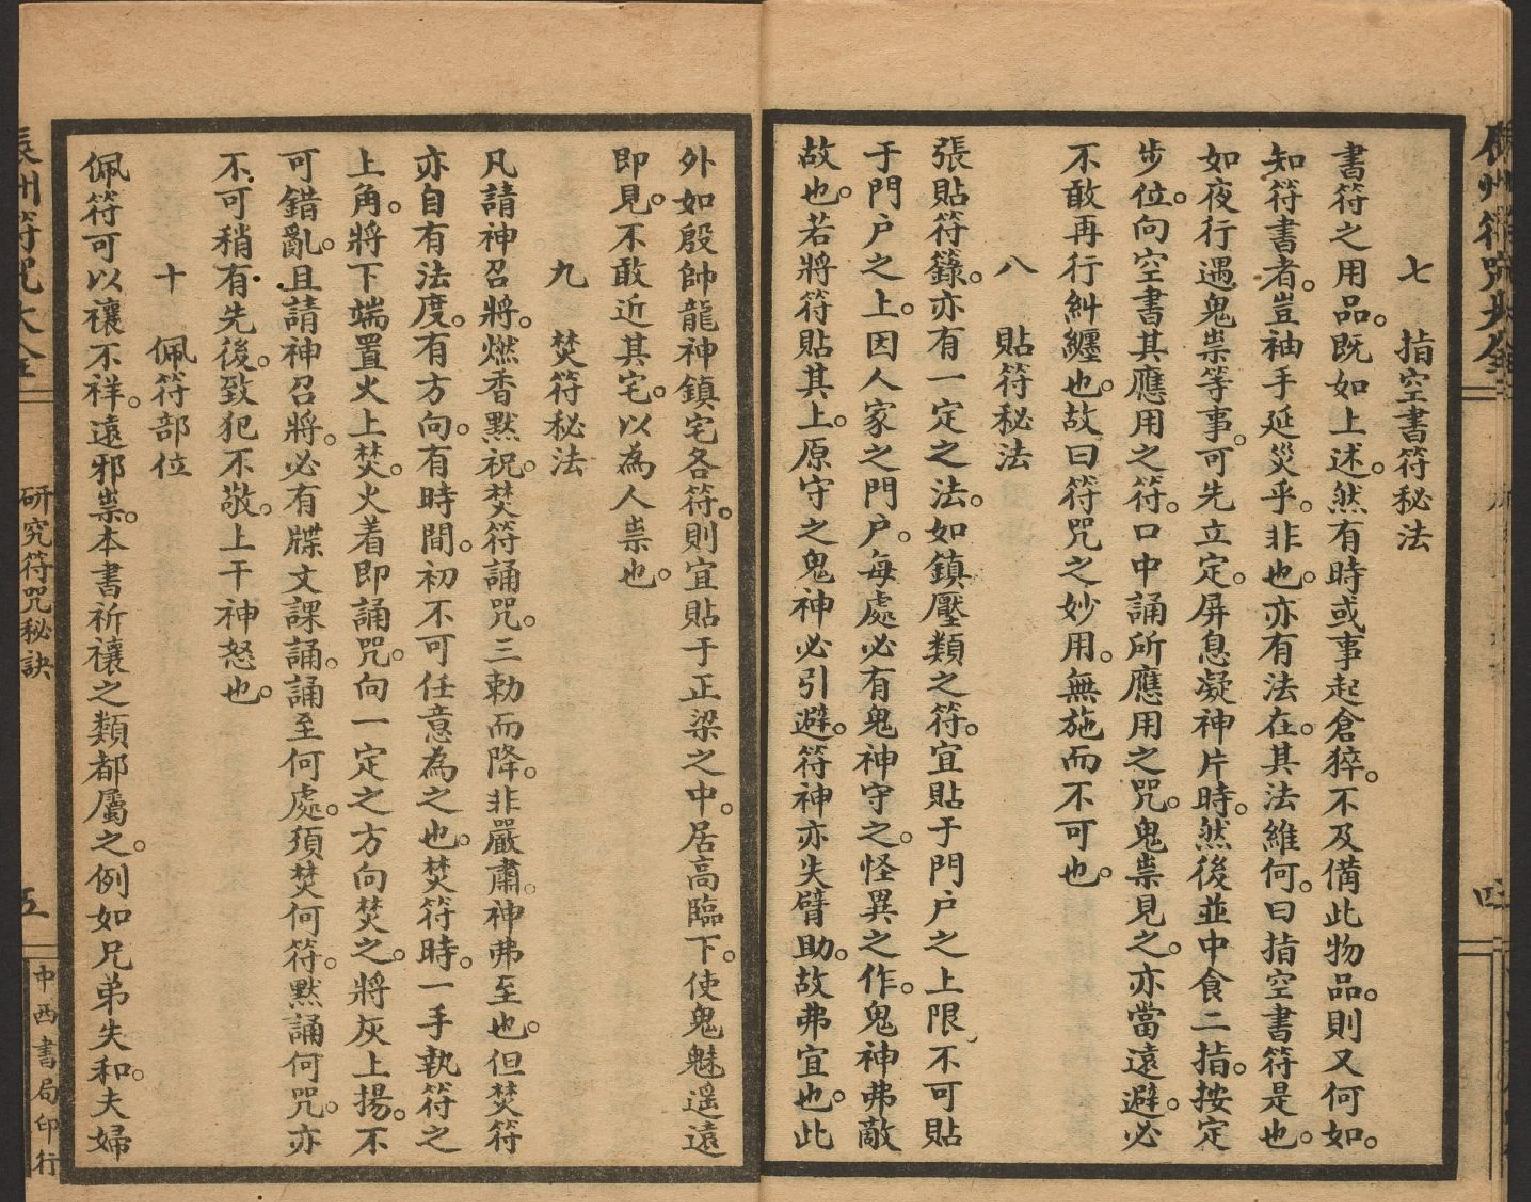 七　指空書符秘法
書符之用品。既如上述。然有時或事起倉猝。不及備此物品。則又何如。
知符書者。豈袖手延災乎。非也。亦有法在。其法維何。曰指空書符是也。
如夜行遇鬼祟等事。可先立定。屏息凝神片時。然後並中食二指。按定
步位。向空書其應用之符。口中誦所應用之咒。鬼祟見之。亦當遠避。必
不敢再行糾纏也。故曰符咒之妙用。無施而不可也。
八　貼符秘法
張貼符籙。亦有一定之法。如鎮壓類之符。宜貼于門戶之上限、不可貼
于門戶之上。因人家之門戶。每處必有鬼神守之。怪異之作。鬼神弗敵
故也。若將符貼其上。原守之鬼神必引避。符神亦失臂助。故弗宜也。此
外如殷帥龍神鎮宅各符。則宜貼于正梁之中。居高臨下。使鬼魅遥遠
即見。不敢近其宅。以為人祟也。
九　焚符秘法
凡請神召將。燃香默祝。焚符誦咒。三勅而降。非嚴肅。神弗至也。但焚符
亦自有法度。有方向。有時間。初不可任意為之也。焚符時。一手執符之
上角。將下端置火上焚。火着即誦咒。向一定之方向焚之。將灰上揚。不
可錯亂。且請神召將。必有牒文課誦。誦至何處。須焚何符。默誦何咒。亦
不可稍有先後。致犯不敬。上干神怒也。
十　佩符部位
佩符可以禳不祥。遠邪祟。本書祈禳之類都屬之。例如兄弟失和。夫婦
辰州符咒大全
研究符咒秘訣
五
中西書局印行